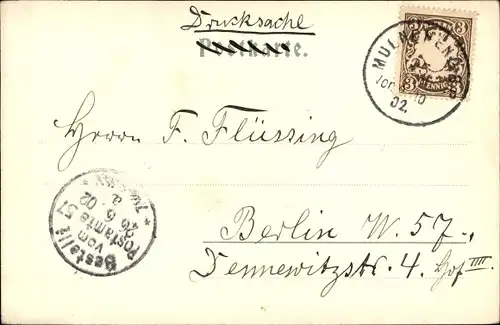 Drucksache
Postkarte.
3 3
PFENNIG
02.
Herrn F. Flüssing
Berlin W. 57.,
Dennewitzstr. 4. Hof IIII
Bestellt
vom
Postamte 57
26 6. 02